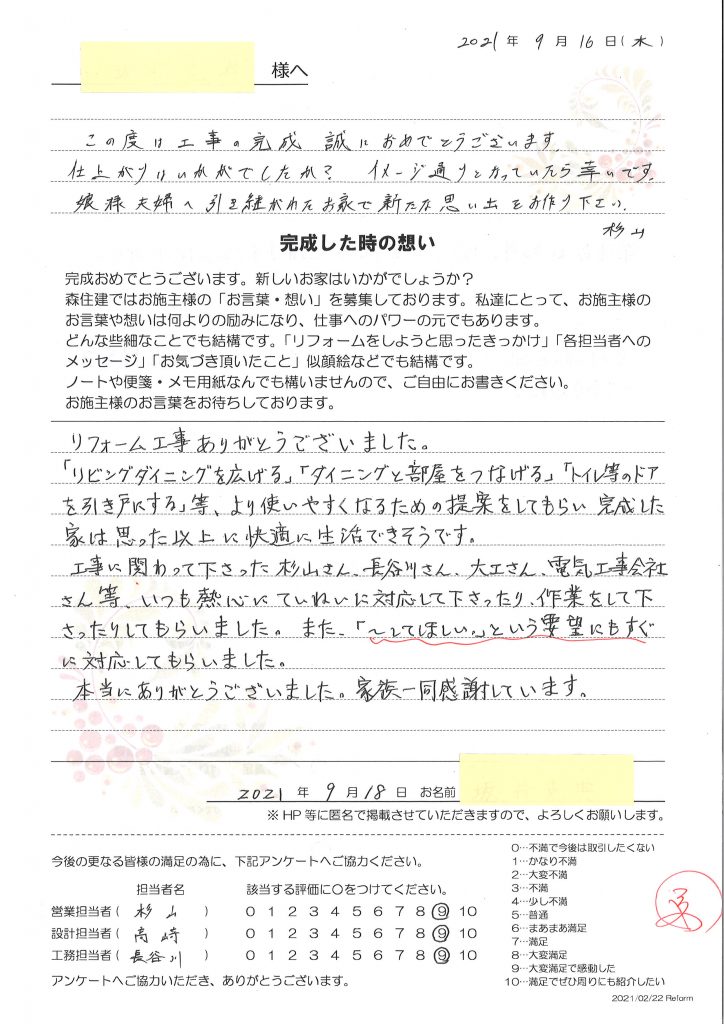 2021 年 9 月 16 日(水)
様へ
この度は工事の完成 誠におめでとうございます。
仕上がりはいかがでしたか? イメージ通りとなっていたら幸いです。
娘様夫婦へ引き継がれたお家で新たな思い出をお作り下さい。
杉山
完成した時の想い
完成おめでとうございます。新しいお家はいかがでしょうか?
森住建ではお施主様の「お言葉・想い」を募集しております。私達にとって、お施主様の
お言葉や想いは何よりの励みになり、仕事へのパワーの元でもあります。
どんな些細なことでも結構です。「リフォームをしようと思ったきっかけ」「各担当者への
メッセージ」「お気づき頂いたこと」似顔絵などでも結構です。
ノートや便箋・メモ用紙なんでも構いませんので、ご自由にお書きください。
お施主様のお言葉をお待ちしております。
リフォーム工事ありがとうございました。
「リビングダイニングを広げる」「ダイニングと部屋をつなげる」「トイレ等のドア
を引き戸にする」等、より使いやすくなるための提案をしてもらい 完成した
家は思った以上に快適に生活できそうです。
工事に関わって下さった杉山さん、長谷川さん、大工さん、電気工事会社
さん等、いつも熱心にていねいに対応して下さったり、作業をして下
さったりしてもらいました。また、「〜してほしい。」という要望にもすぐ
に対応してもらいました。
本当にありがとうございました。家族一同感謝しています。
2021 年 9 月 18 日 お名前
※HP等に匿名で掲載させていただきますので、よろしくお願いします。
今後の更なる皆様の満足の為に、下記アンケートへご協力ください。
担当者名 該当する評価に○をつけてください。
営業担当者( 杉山 ) 0 1 2 3 4 5 6 7 8 9 10
設計担当者( 高崎 ) 0 1 2 3 4 5 6 7 8 9 10
工務担当者( 長谷川 ) 0 1 2 3 4 5 6 7 8 9 10
アンケートへご協力いただき、ありがとうございます。
0…不満で今後は取引したくない
1…かなり不満
2…大変不満
3…不満
4…少し不満
5…普通
6…まあまあ満足
7…満足
8…大変満足
9…大変満足で感動した
10…満足でぜひ周りにも紹介したい
2021/02/22 Reform